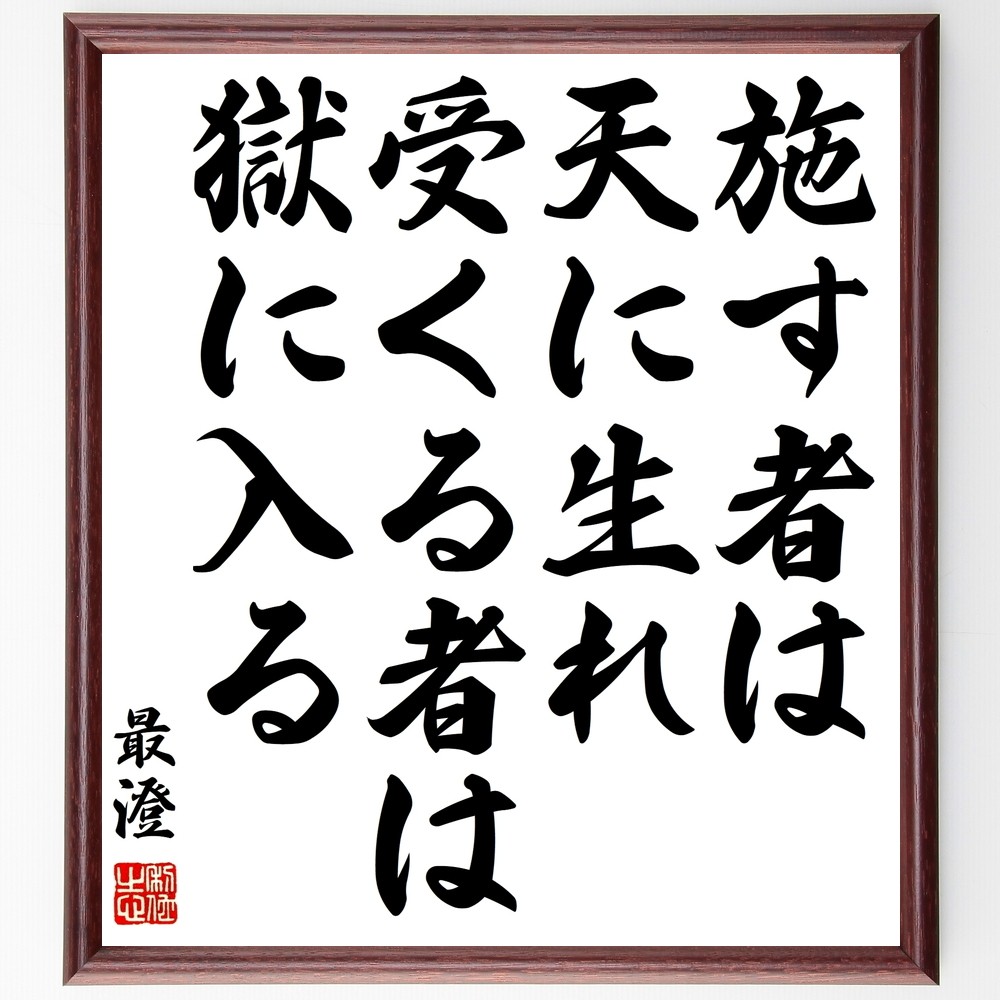 施す者は
天に生れ
受くる者は
獄に入る
最澄